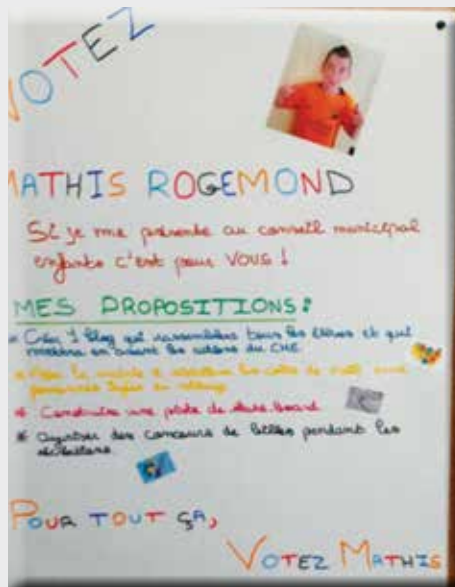 VOTEZ
MATHIS ROGEMOND
Si je me présente au conseil municipal
enfants c'est pour VOUS !
MES PROPOSITIONS :
* Créer 1 blog qui rassemblera tous les élèves et qui
mettra en avant les actions du CME
* la mairie à
personnes
* Construire une piste de skate.board
* Organiser des concours de billes pendant les
récréations
POUR TOUT ÇA,
VOTEZ MATHIS